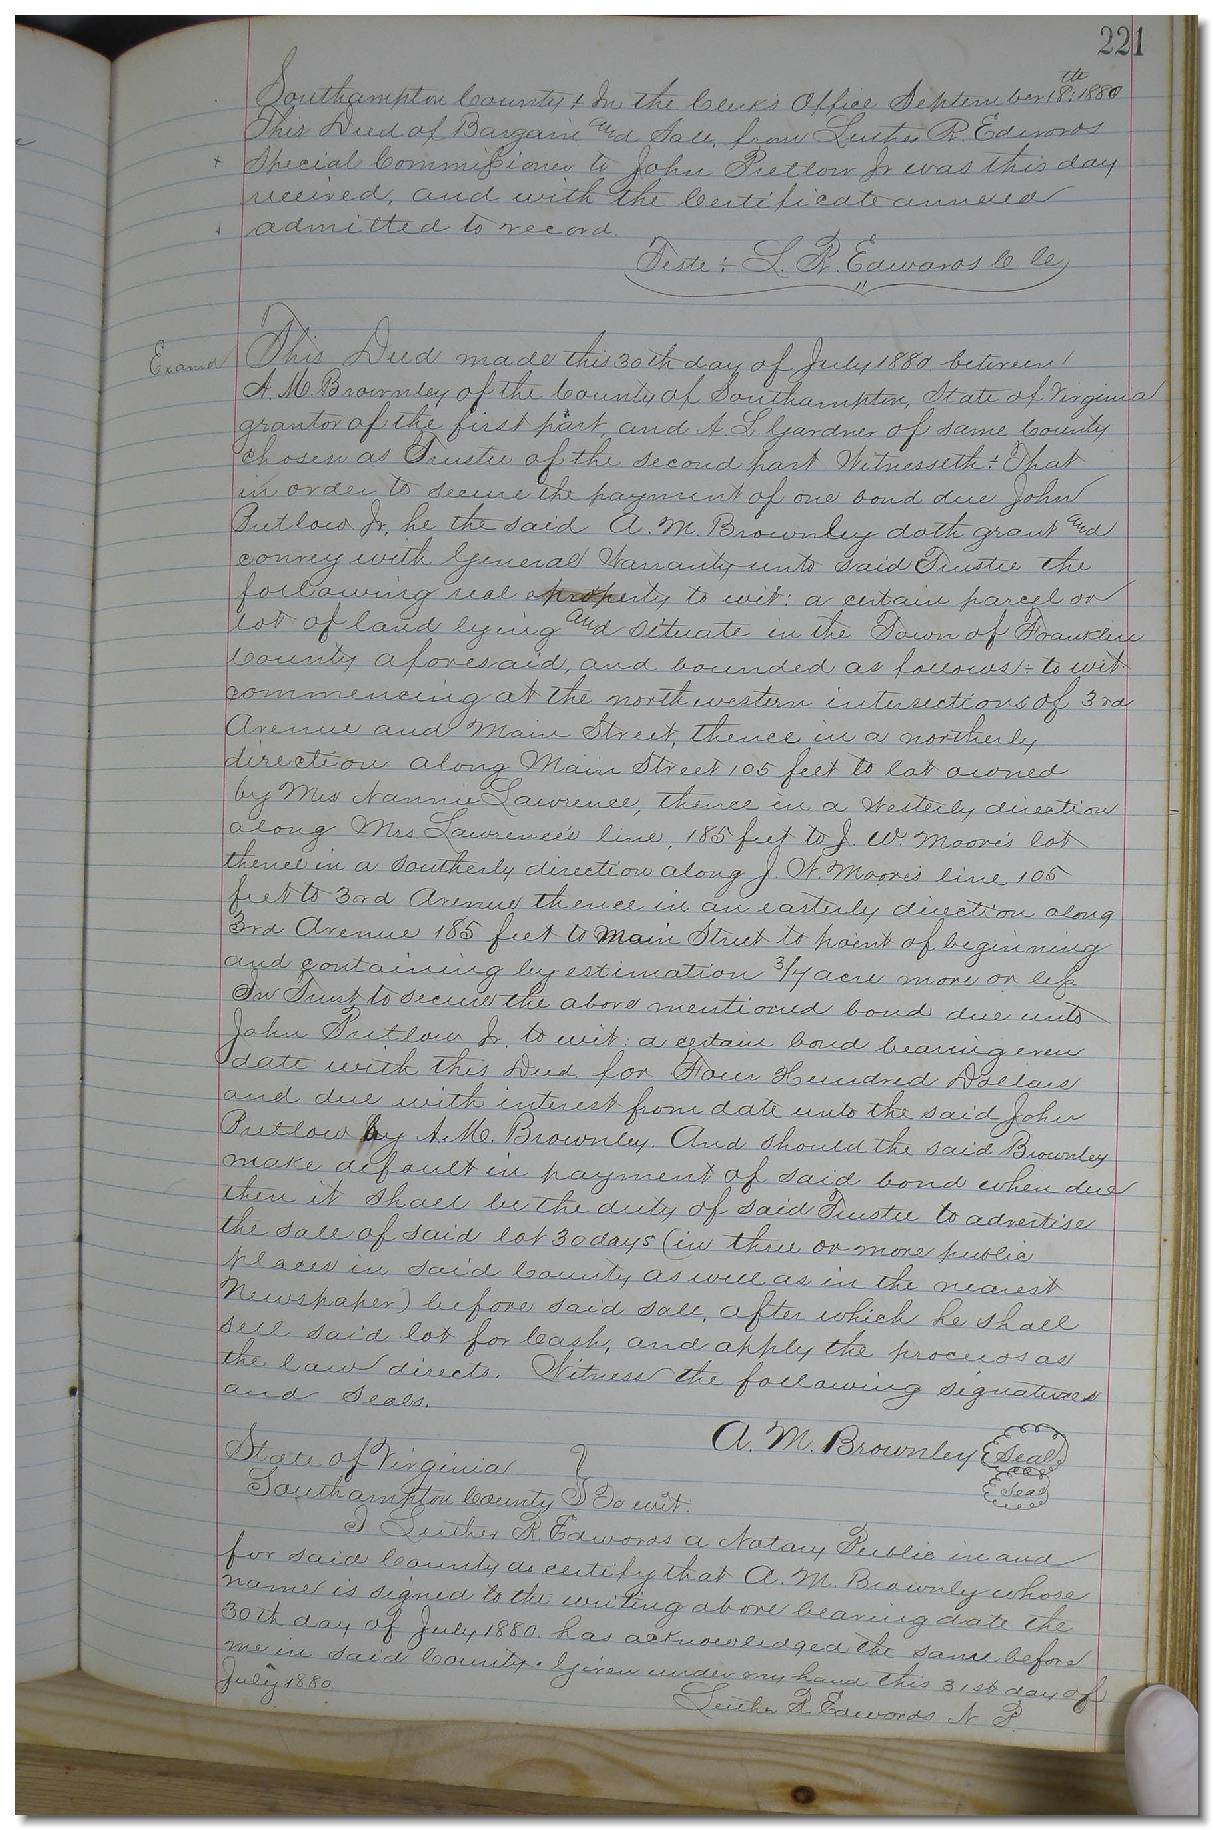 221
Southampton County + In the Clerk's Office September 18th: 1880
This Deed of Bargain and Sale, from Luther R. Edwards
Special Commissioner to John Pretlow Jr was this day
received, and with the Certificate annexed
admitted to record.
Teste: L. R. Edwards C Ck
Examd
This Deed made this 30th day of July 1880 between
A. M. Brownley of the County of Southampton, State of Virginia
grantor of the first part, and A. L Gardner of same County
chosen as Trustee of the second part Witnesseth: That
in order to secure the payment of one bond due John
Pretlow Jr, he the said A. M. Brownley doth grant and
convey with General Warranty unto said Trustee the
following real property to wit: a certain parcel or
lot of land lying and situate in the Town of Franklin
County aforesaid, and bounded as follows: to wit
commencing at the north western intersections of 3rd
Avenue and Main Street, thence in a northerly
direction along Main Street 105 feet to lot owned
by Mrs Nannie Lawrence, thence in a Westerly direction
along Mrs Lawrence's line, 185 feet to J. W. Moore's lot
thence in a Southerly direction along J. W. Moore's line 105
feet to 3rd Avenue thence in an easterly direction along
3rd Avenue 185 feet to Main Street to point of beginning
and containing by estimation 3/7 acre more or less
In Trust to secure the above mentioned bond due unto
John Pretlow Jr. to wit: a certain bond bearing even
date with this Deed for Four Hundred Dollars
and due with interest from date unto the said John
Pretlow by A. M. Brownley. And should the said Brownley
make default in payment of said bond when due
then it shall be the duty of said Trustee to advertise
the sale of said lot 30 days (in three or more public
places in said County as well as in the nearest
Newspaper) before said sale, after which he shall
sell said lot for Cash, and apply the proceeds as
the law directs. Witness the following signatures
and seals.
A. M. Brownley Seal
Seal
State of Virginia
Southampton County To wit.
I Luther R. Edwards a Notary Public in and
for said County do certify that A. M. Brownly whose
name is signed to the writing above bearing date the
30th day of July 1880. has acknowledged the same before
me in said County. Given under my hand this 31st day of
July 1880
Luther R. Edwards N. P.